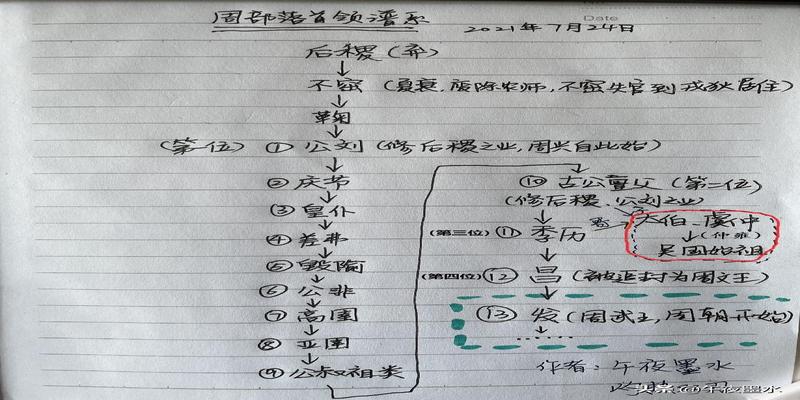 周部落首领谱系
Date
2021年7月24日
后稷（弃）
不窋（夏衰，废除农师，不窋失官到戎狄居住）
鞠
（第一位）① 公刘（修后稷之业，周兴自此始）
② 庆节
③ 皇仆
④ 差弗
⑤ 毁隃
⑥ 公非
⑦ 高圉
⑧ 亚圉
⑨ 公叔祖类
⑩ 古公亶父（第二位）
（修后稷、公刘之业）
太伯、虞仲
（仲雍）
吴国始祖
（第三位）⑪ 季历
（第四位）⑫ 昌（被追封为周文王）
⑬ 发（周武王，周朝开始）
……
作者：午夜墨水
头条@午夜墨水